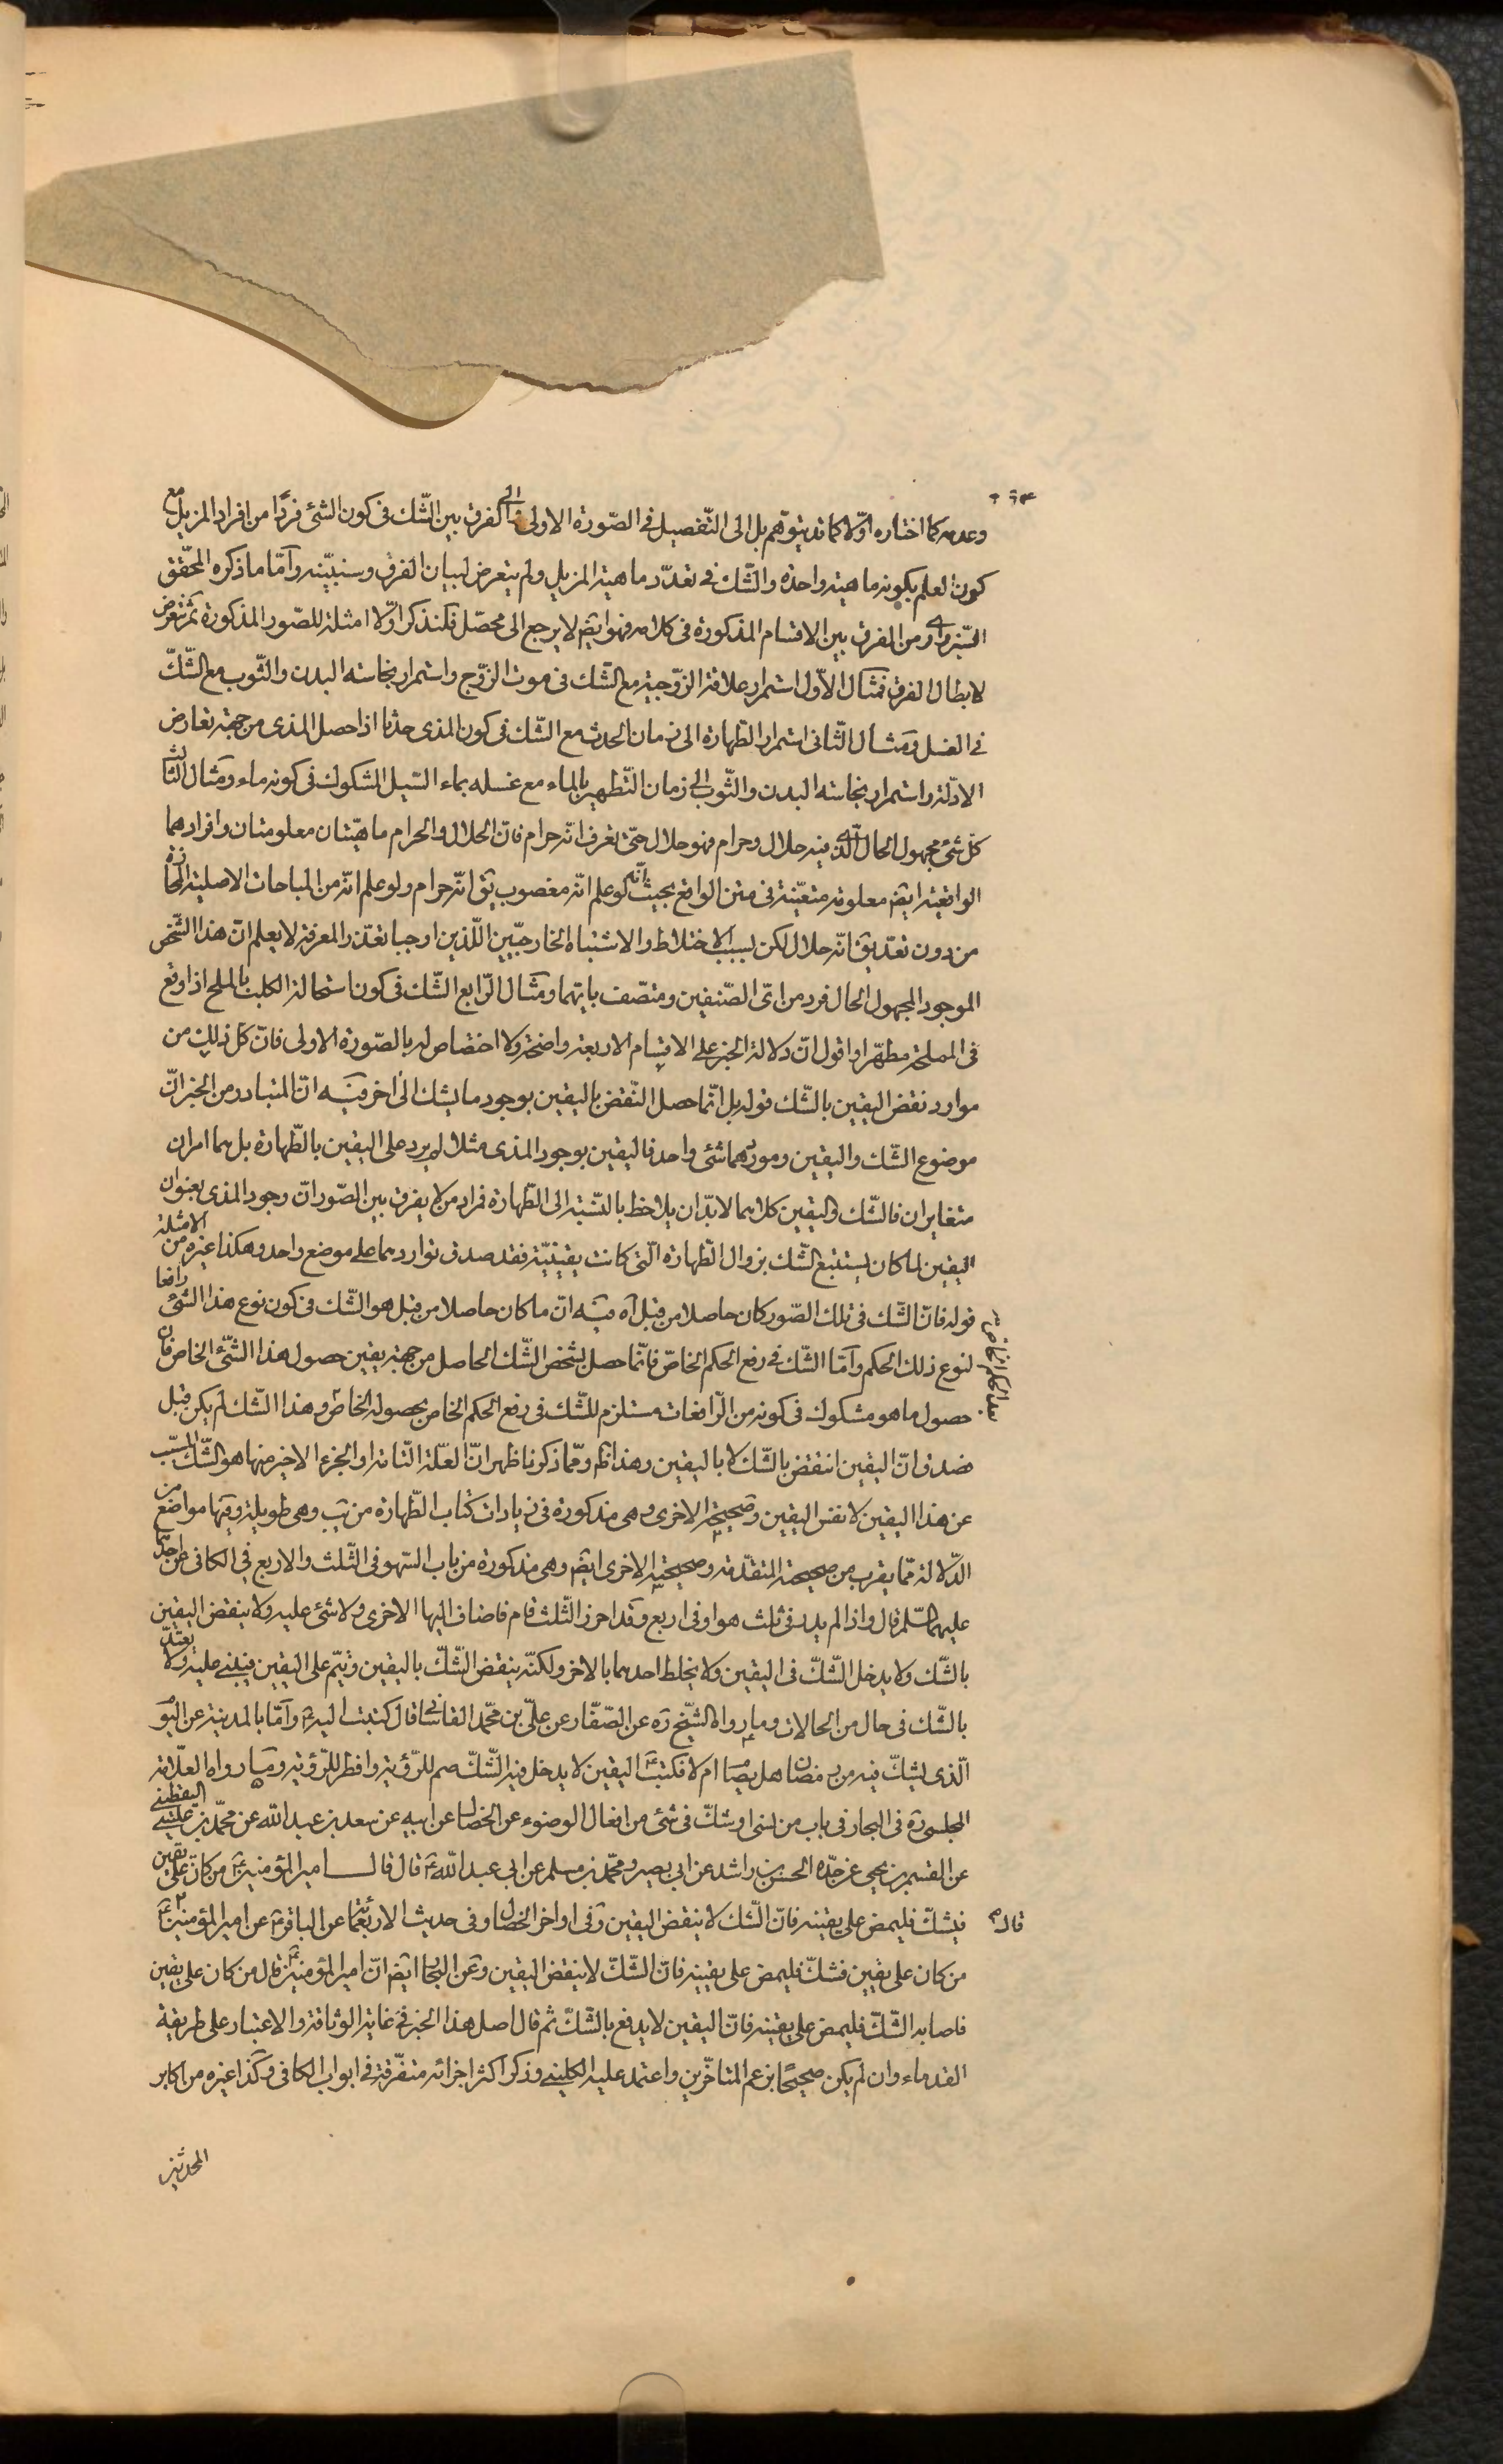 وعدمه كما اختاره اوّلا كما قد يتوهّم بل الى التّفصيل فى الصّورة الاولى الى الفرق بين الشّك فى كون الشئ فردًا من افراد المزيل مع
كون العلم بكونه ماهية واحدة والشّك فى تعدّد ماهية المزيل ولم يتعرض لبيان الفرق وسنبيّنه وامّا ما ذكره المحقّق
السّبزوارى من الفرق بين الاقسام المذكورة فى كلامه فهو ايضا لا يرجع الى محصّل فلنذكر اوّلا امثلة للصّور المذكورة ثم نتعرض
لابطال الفرق فمثال الاوّل استمرار علاقة الزّوجية مع الشّك فى موت الزّوج واستمرار نجاسة البدن والثّوب مع الشّكّ
فى الغسل ومثال الثّانى استمرار الطّهارة الى زمان الحدث مع الشّك فى كون المذى حدثا اذا حصل المذى من جهة تعارض
الادلّة واستمرار نجاسة البدن والثّوب الى زمان التّطهير بالماء مع غسله بماء السّيل المشكوك فى كونه ماء ومثال الثّالث
كلّ شئ مجهول الحال الّذى فيه حلال وحرام فهو حلال حتّى تعرف انّه حرام فانّ الحلال والحرام ماهيّتان معلومتان وافرادهما
الواقعيّة ايضا معلومة متعيّنة فى متن الواقع بحيث انّه لو علم انّه مغصوب يقال انّه حرام ولو علم انّه من المباحات الاصلية المحازة
من دون تعدّ يقال انّه حلال لكن بسبب الاختلاط والاشتباه الخارجيّين اللّذين اوجبا تعذّر المعرفة لا يعلم انّ هذا الشّخص
الموجود المجهول الحال فرد من اىّ الصّنفين ومتّصف بايّهما ومثال الرّابع الشّك فى كون استحالة الكلب بالملح اذا وقع
فى المملحة مطهّرا واقول انّ دلالة الخبر على الاقسام الاربعة واضحة ولا اختصاص له بالصّورة الاولى فانّ كلّ ذلك من
موارد نقض اليقين بالشّك قوله بل انّما حصل النّقض باليقين بوجود ما يشك الى اخر فيه انّ المتبادر من الخبر انّ
موضوع الشّك واليقين وموردهما شئ واحد فاليقين بوجود المذى مثلا لم يرد على اليقين بالطّهارة بل هما امران
متغايران فالشّك واليقين كلاهما لابدّ ان يلاحظ بالنّسبة الى الطّهارة فمراد من لا يفرق بين الصّور انّ وجود المذى بعنوان
اليقين لما كان يستتبع الشّك بزوال الطّهارة الّتى كانت يقينيّة فقد صدق تواردهما على موضع واحد وهكذا غيره من الامثلة
قوله فانّ الشّك فى تلك الصّور كان حاصلا من قبل آه فيه انّ ما كان حاصلا من قبل هو الشّك فى كون نوع هذا الشئ رافعا
لنوع ذلك الحكم وامّا الشّك فى رفع الحكم الخاصّ فانّما حصل بشخص الشّك الحاصل من جهة يقين حصول هذا الشّئ الخاص فان
حصول ما هو مشكوك فى كونه من الرّافعات مستلزم للشّك فى رفع الحكم الخاص بحصوله الخاصّ وهذا الشّك لم يكن قبل
فصدق انّ اليقين انتقض بالشّك لا باليقين وهذا ظ وممّا ذكرنا ظهر انّ العلّة التّامة او الجزء الاخير منها هو الشّك المسبّب
عن هذا اليقين لا نفس اليقين وصحيحته الاخرى وهى مذكورة فى زيادات كتاب الطّهارة من يب وهى طويلة وفيها مواضع من
الدّلالة ممّا يقرب من صحيحته المتقدّمة وصحيحته الاخرى ايضا وهى مذكورة من باب السّهو فى الثّلث والاربع فى الكافى عن احدهما
عليهما السّلم قال واذا لم يدر فى ثلث هو او فى اربع وقد احرز الثّلث قام فاضاف اليها الاخرى ولا شئ عليه ولا ينقض اليقين
بالشّك ولا يدخل الشّكّ فى اليقين ولا يخلط احدهما بالاخر ولكنّه ينقض الشّكّ باليقين ويتمّ على اليقين فيبنى عليه ولا يعتدّ
بالشّك فى حال من الحالات وما رواه الشّيخ ره عن الصّفّار عن علىّ بن محمّد القاسانى قال كتبت اليه وانا بالمدينة عن اليوم
الّذى يشكّ فيه من رمضان هل يصام ام لا فكتب اليقين لا يدخل فيه الشّكّ صم للرّؤية وافطر للرّؤية وما رواه العلّامة
المجلسى ره فى البحار فى باب من نسى او شكّ فى شئ من افعال الوضوء عن الخصال عن ابيه عن سعد بن عبد الله عن محمّد بن عيسى اليقطينى
عن القسم بن يحيى عن جدّه الحسن بن راشد عن ابى بصير ومحمّد بن مسلم عن ابى عبد الله ع قال قال امير المؤمنين ع من كان على يقين
فشكّ فليمض على يقينه فانّ الشّك لا ينقض اليقين وفى اواخر الخصال وفى حديث الاربعمائة عن الباقر ع عن امير المؤمنين ع قال
من كان على يقين فشكّ فليمض على يقينه فانّ الشّكّ لا ينقض اليقين وعن البحار ايضا انّ امير المؤمنين ع قال من كان على يقين
فاصابه الشّكّ فليمض على يقينه فانّ اليقين لا يدفع بالشّكّ ثم قال اصل هذا الخبر فى غاية الوثاقة والاعتبار على طريقة
القدماء وان لم يكن صحيحًا بزعم المتاخّرين واعتمد عليه الكلينى وذكر اكثر اجزائه متفرّقة فى ابواب الكافى وكذا غيره من اكابر
المحدثين